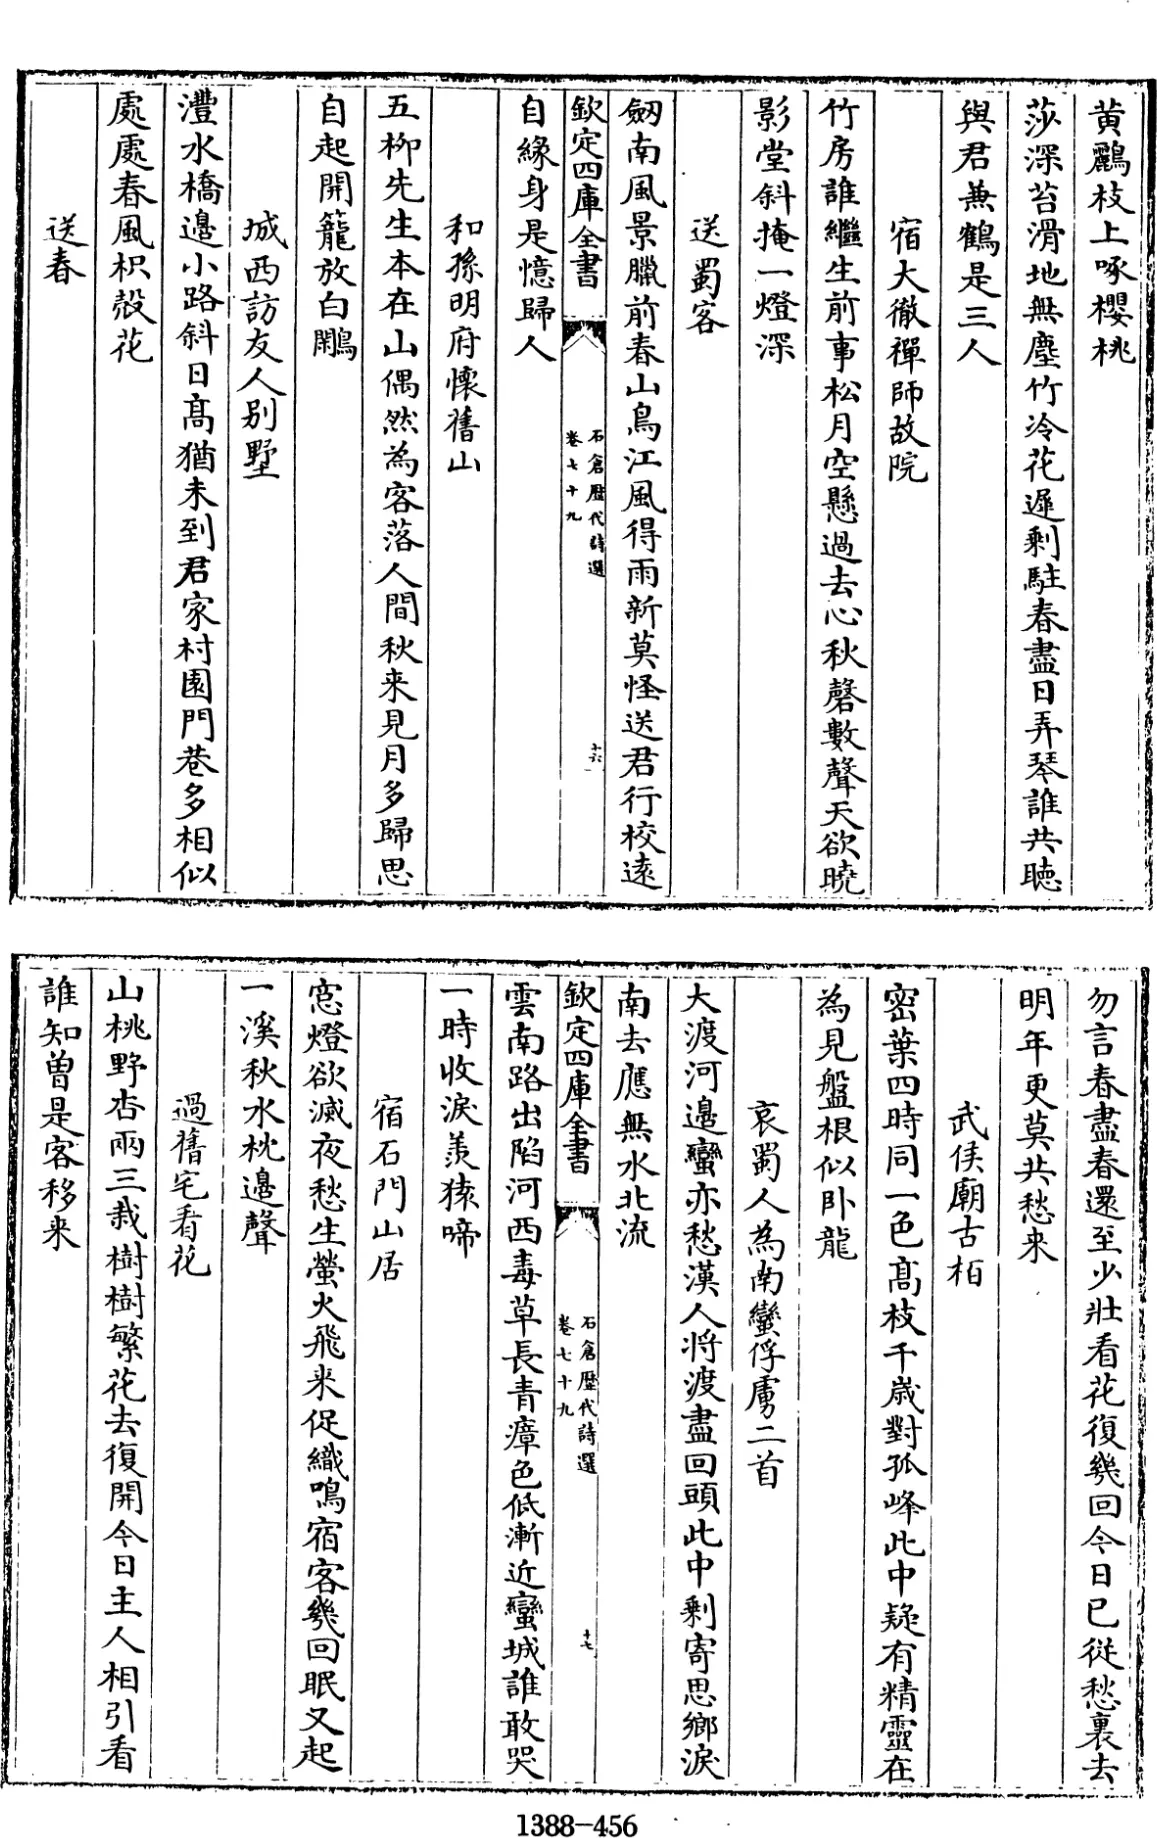 黄鸝枝上啄櫻桃
莎深苔滑地無塵竹冷花遲剰駐春盡日弄琴誰共聴
與君兼鶴是三人
宿大徹禪師故院
竹房誰繼生前事松月空懸過去心秋磬數聲天欲曉
影堂斜掩一燈深
送蜀客
劔南風景臘前春山鳥江風得雨新莫怪送君行校逺
欽定四庫全書
石倉歴代詩選
卷七十九
十六
自緣身是憶歸人
和孫明府懷舊山
五柳先生本在山偶然為客落人間秋來見月多歸思
自起開籠放白鷴
城西訪友人别墅
灃水橋邊小路斜日髙猶未到君家村園門巷多相似
處處春風枳殼花
送春
勿言春盡春還至少壯看花復幾回今日已從愁裏去
明年更莫共愁来
武侯廟古柏
密葉四時同一色髙枝千歳對孤峰此中疑有精靈在
為見盤根似卧龍
哀蜀人為南蠻俘虜二首
大渡河邊蠻亦愁漢人將渡盡回頭此中剰寄思鄉淚
南去應無水北流
欽定四庫全書
石倉歴代詩選
卷七十九
十七
雲南路出陷河西毒草長青瘴色低漸近蠻城誰敢哭
一時收淚羨猿啼
宿石門山居
窓燈欲滅夜愁生螢火飛來促織鳴宿客幾回眠又起
一溪秋水枕邊聲
過舊宅看花
山桃野杏兩三栽樹樹繁花去復開今日主人相引看
誰知曽是客移来
1388-456